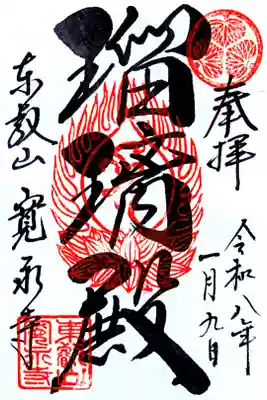 奉拝
令和八年
一月九日
瑠璃殿
東叡山 寛永寺